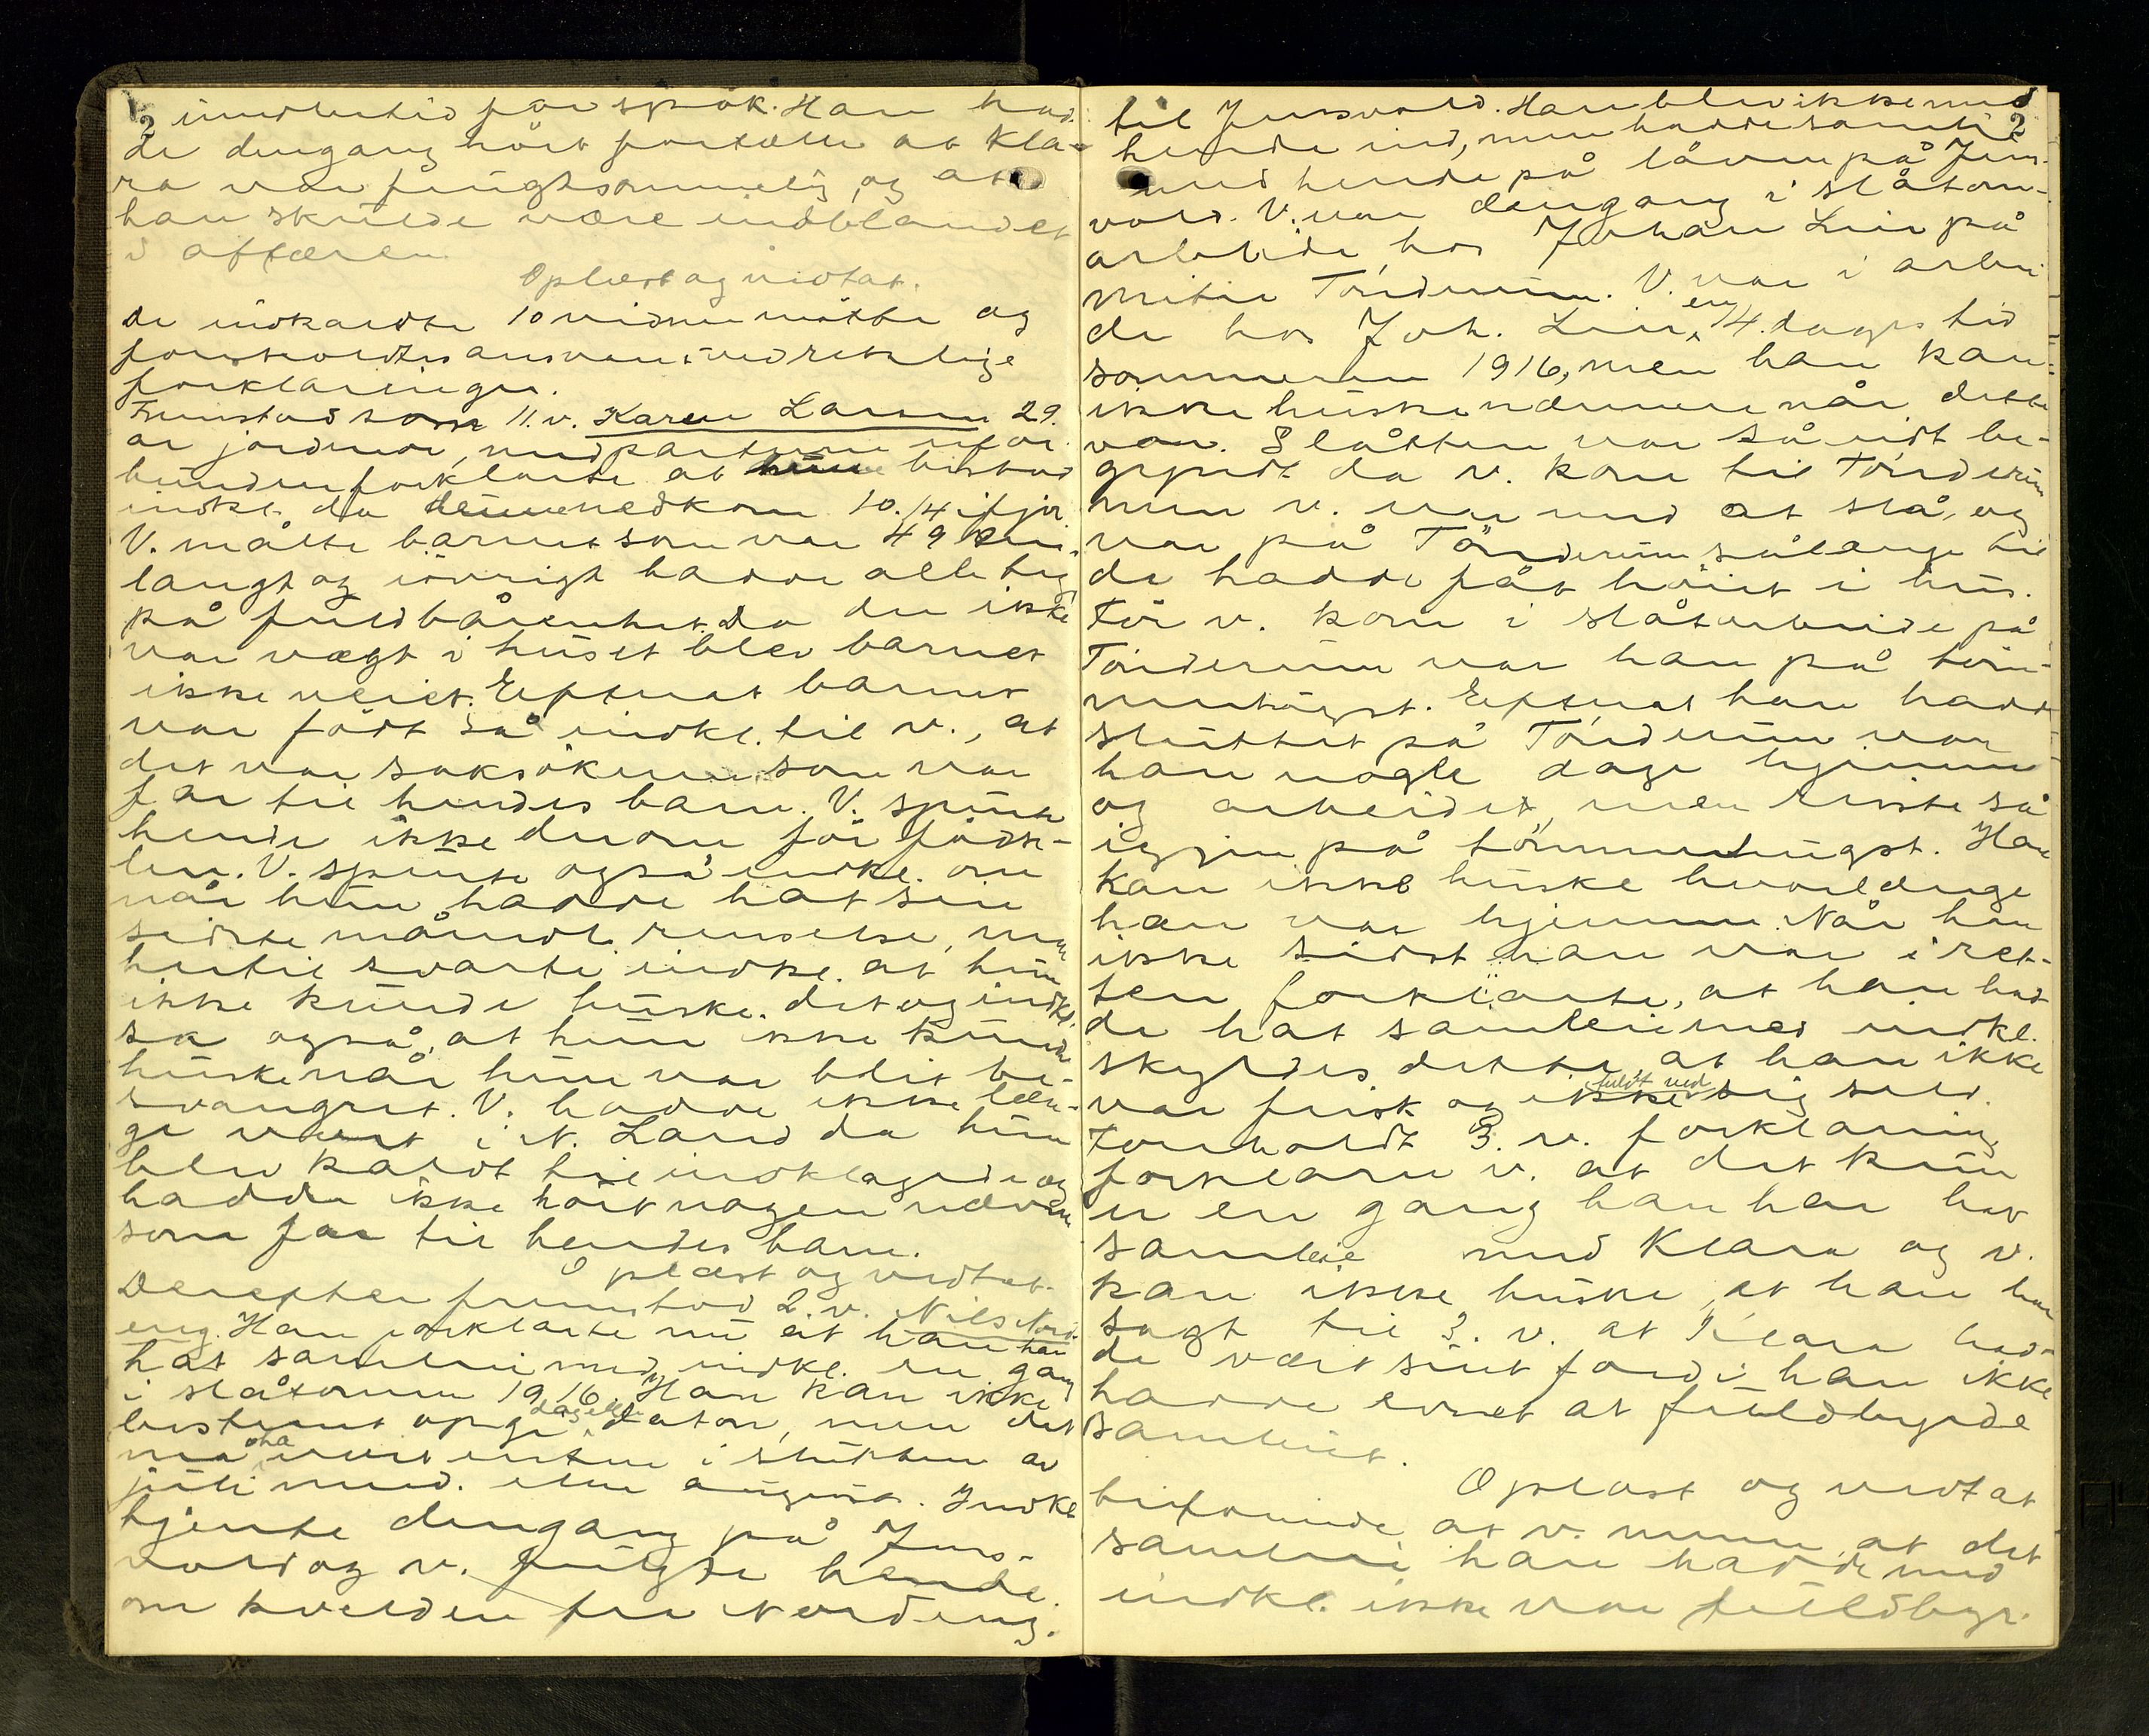 2 imidlertid for spøk. Han had-
de dengang hört fortælle at Kla-
ra var frugtsommelig, og at
han skulde være indblandet
i affæren.
Oplæst og vedtat.
De indkaldte 10 vidner mötte og
foreholdtes ansvaret ved retslige
forklaringer.
Fremstod som 11. v. Karen Larsen 29.
år jordmor, med parterne ufor-
bunden forklarte at hun bistod
indkl. da denne nedkom 10./4 ifjor.
V. målte barnet som var 49 cm.
langt og iövrigt hadde alle tegn
på fuldbårenhet. Da der ikke
var vægt i huset blev barnet
ikke veiet. Efterat barnet
var födt sa indkl. til v., at
det var saksökeren som var
far til hendes barn. V. spurte
hende ikke derom för födse-
len. V. spurte også indkl. om
når hun hadde hat sin
sidste månedl. renselse, men
hertil svarte indkl. at hun
ikke kunde huske det og indkl.
sa også, at hun ikke kunde
huske når hun var blit be-
svangret. V. hadde ikke læn-
ge været i N. Land da hun
blev kaldt til indklagede og
hadde ikke hört nogen nævnt
som far til hendes barn.
Oplæst og vedtat.
Derefter fremstod 2. v. Nils Nord-
eng. Han forklarte nu at han har
hat samleie med indkl. en gang
i slåtonnen 1916. Han kan ikke
bestemt opgi dag eller datoen, men det
må ha været enten i slutten av
juli mnd. eller august. Indkl.
tjente dengang på Jens-
vold og v. fulgte hende
om kvelden fra Nordeng
til Jensvold. Han blev ikke med 2
hende ind, men hadde samleie
med hende på låven på Jens-
vold. V. var dengang i slåtonn-
arbeide hos Johan Lien på
Tönderum. V. var i arbei-
de hos Joh. Lien en 14. dages tid
sommeren 1916, men han kan
ikke huske nærmere når dette
var. Slåtten var så vidt be-
gyndt da v. kom til Tönderum
men v. var med at slå, og
var på Tönderum sålænge til
de hadde fåt höiet i hus.
För v. kom i slåtarbeide på
Tönderum var han på töm-
merhugst. Efterat han hadde
sluttet på Tönderum var
han nogle dage hjemme
og arbeidet, men reiste så
igjen på tömmerhugst. Han
kan ikke huske hvorlænge
han var hjemme. Når han
ikke sidst han var i ret-
ten forklarte, at han had-
de hat samleie med indkl.
skyldes dette at han ikke
var frisk og ikke fuldt ved sig selv.
Foreholdt 3. v. forklaring
forklarer v. at det kun
er en gang han har hat
samleie med Klara og v.
kan ikke huske, at han har
sagt til 3. v. at Klara had-
de vært sint fordi han ikke
hadde evnet at fuldbyrde
samleiet.
Oplæst og vedtat
tilföiende at v. mener, at det
samleie han hadde med
indkl. ikke var fuldbyr-